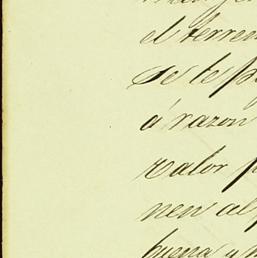 el terren
se les p
á razon
valor p
nen al p
buena y